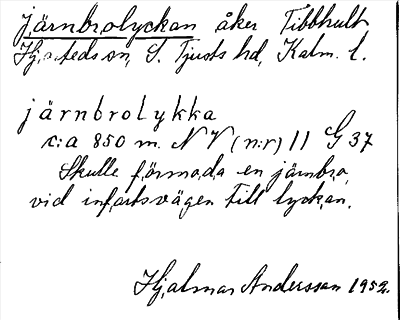 Järnbrolyckan åker Tibbhult
Hjorteds sn, S. Tjusts hd, Kalm. l.
järnbrolykka
c:a 850 m. N V (n:r) 11 G 37
Skulle förmoda en järnbro
vid infartsvägen till lyckan.
Hjalmar Andersson 1952.